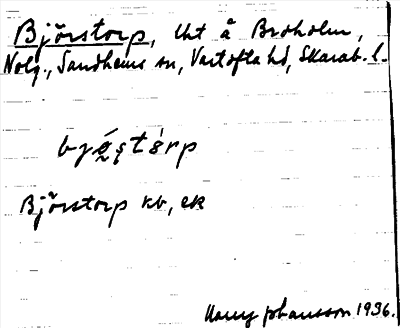 Björstorp, Uht å Broholm,
Nolg., Sandhems sn, Vartofta hd, Skarab. l.
bjö̀ştórp
Björstorp kb, ek
Harry Johansson 1936.